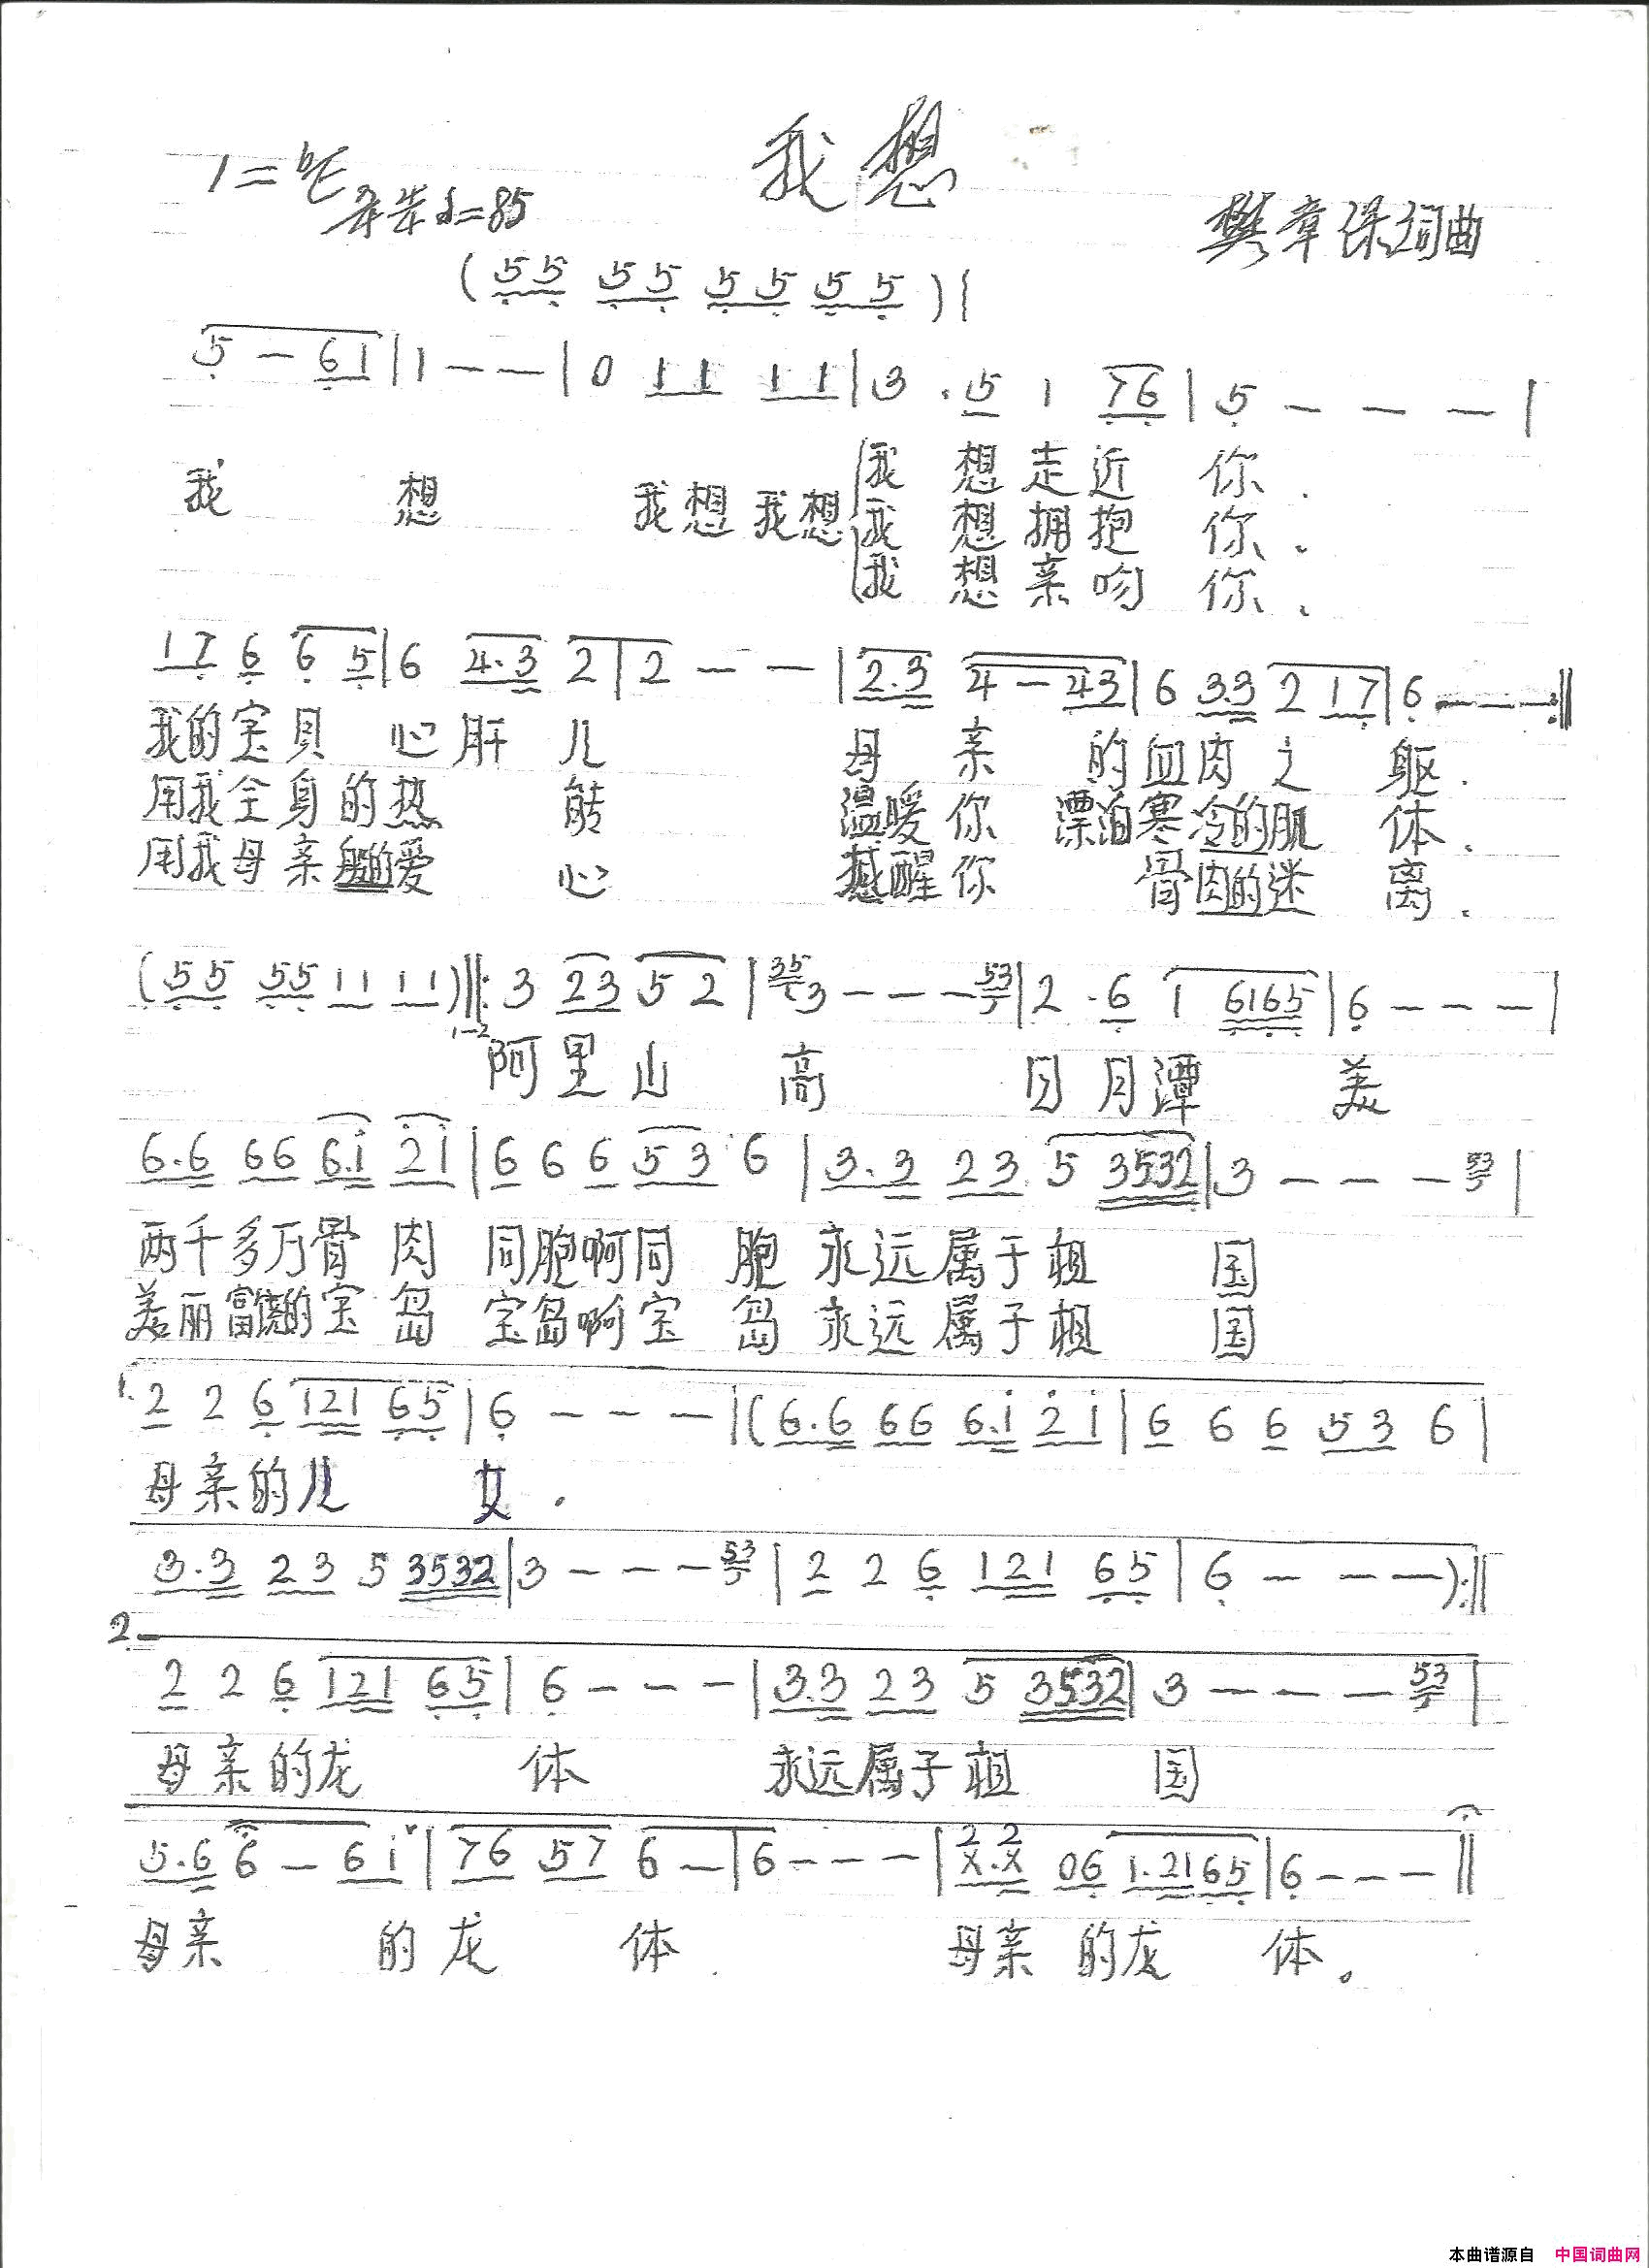 我想
1=♭E
♩=85
樊章保词曲
(55 55 55 55)|
5 - 61|1 - -|0 11 11|3 .5 1 76|5 - - -|
我 想 走 近 你.
我 想 我想 我想 我 想 拥 抱 你.
我 想 亲 吻 你.
17 6 6 5|6 4.3 2|2 - -|2.3 4 - 43|6 3.3 2 17|6 - - - :‖
我的宝贝 心肝 儿 母 亲 的血肉之 躯.
用我全身的热 能 温暖你 漂泊寒冷的肌 体.
用我母亲般的爱 心 撼醒你 骨肉的迷 离.
(55 55 11 11)‖: 3 23 5 2|35 3 - - - 53|2 .6 1 6165|6 - - -|
1-2
阿里山 高 日月潭 美
6.6 66 6.i 2i|6 6 6 53 6|3.3 23 5 3532|3 - - - 53|
两千多万骨 肉 同胞啊同 胞 永远属于祖 国
美丽富饶的宝 岛 宝岛啊宝 岛 永远属于祖 国
1. 2 2 6 121 65|6 - - -|(6.6 66 6.i 2i|6 6 6 53 6|
母亲的儿 女.
3.3 23 5 3532|3 - - - 53|2 2 6 121 65|6 - - -):‖
2.
2 2 6 121 65|6 - - -|3.3 23 5 3532|3 - - - 53|
母亲的龙 体 永远属于祖 国
5.6 6 - 6i|76 57 6 -|6 - - -|2 2 X.X 06 1.2165|6 - - -‖
母亲 的龙 体. 母亲 的龙 体。
本曲谱源自 中国词曲网